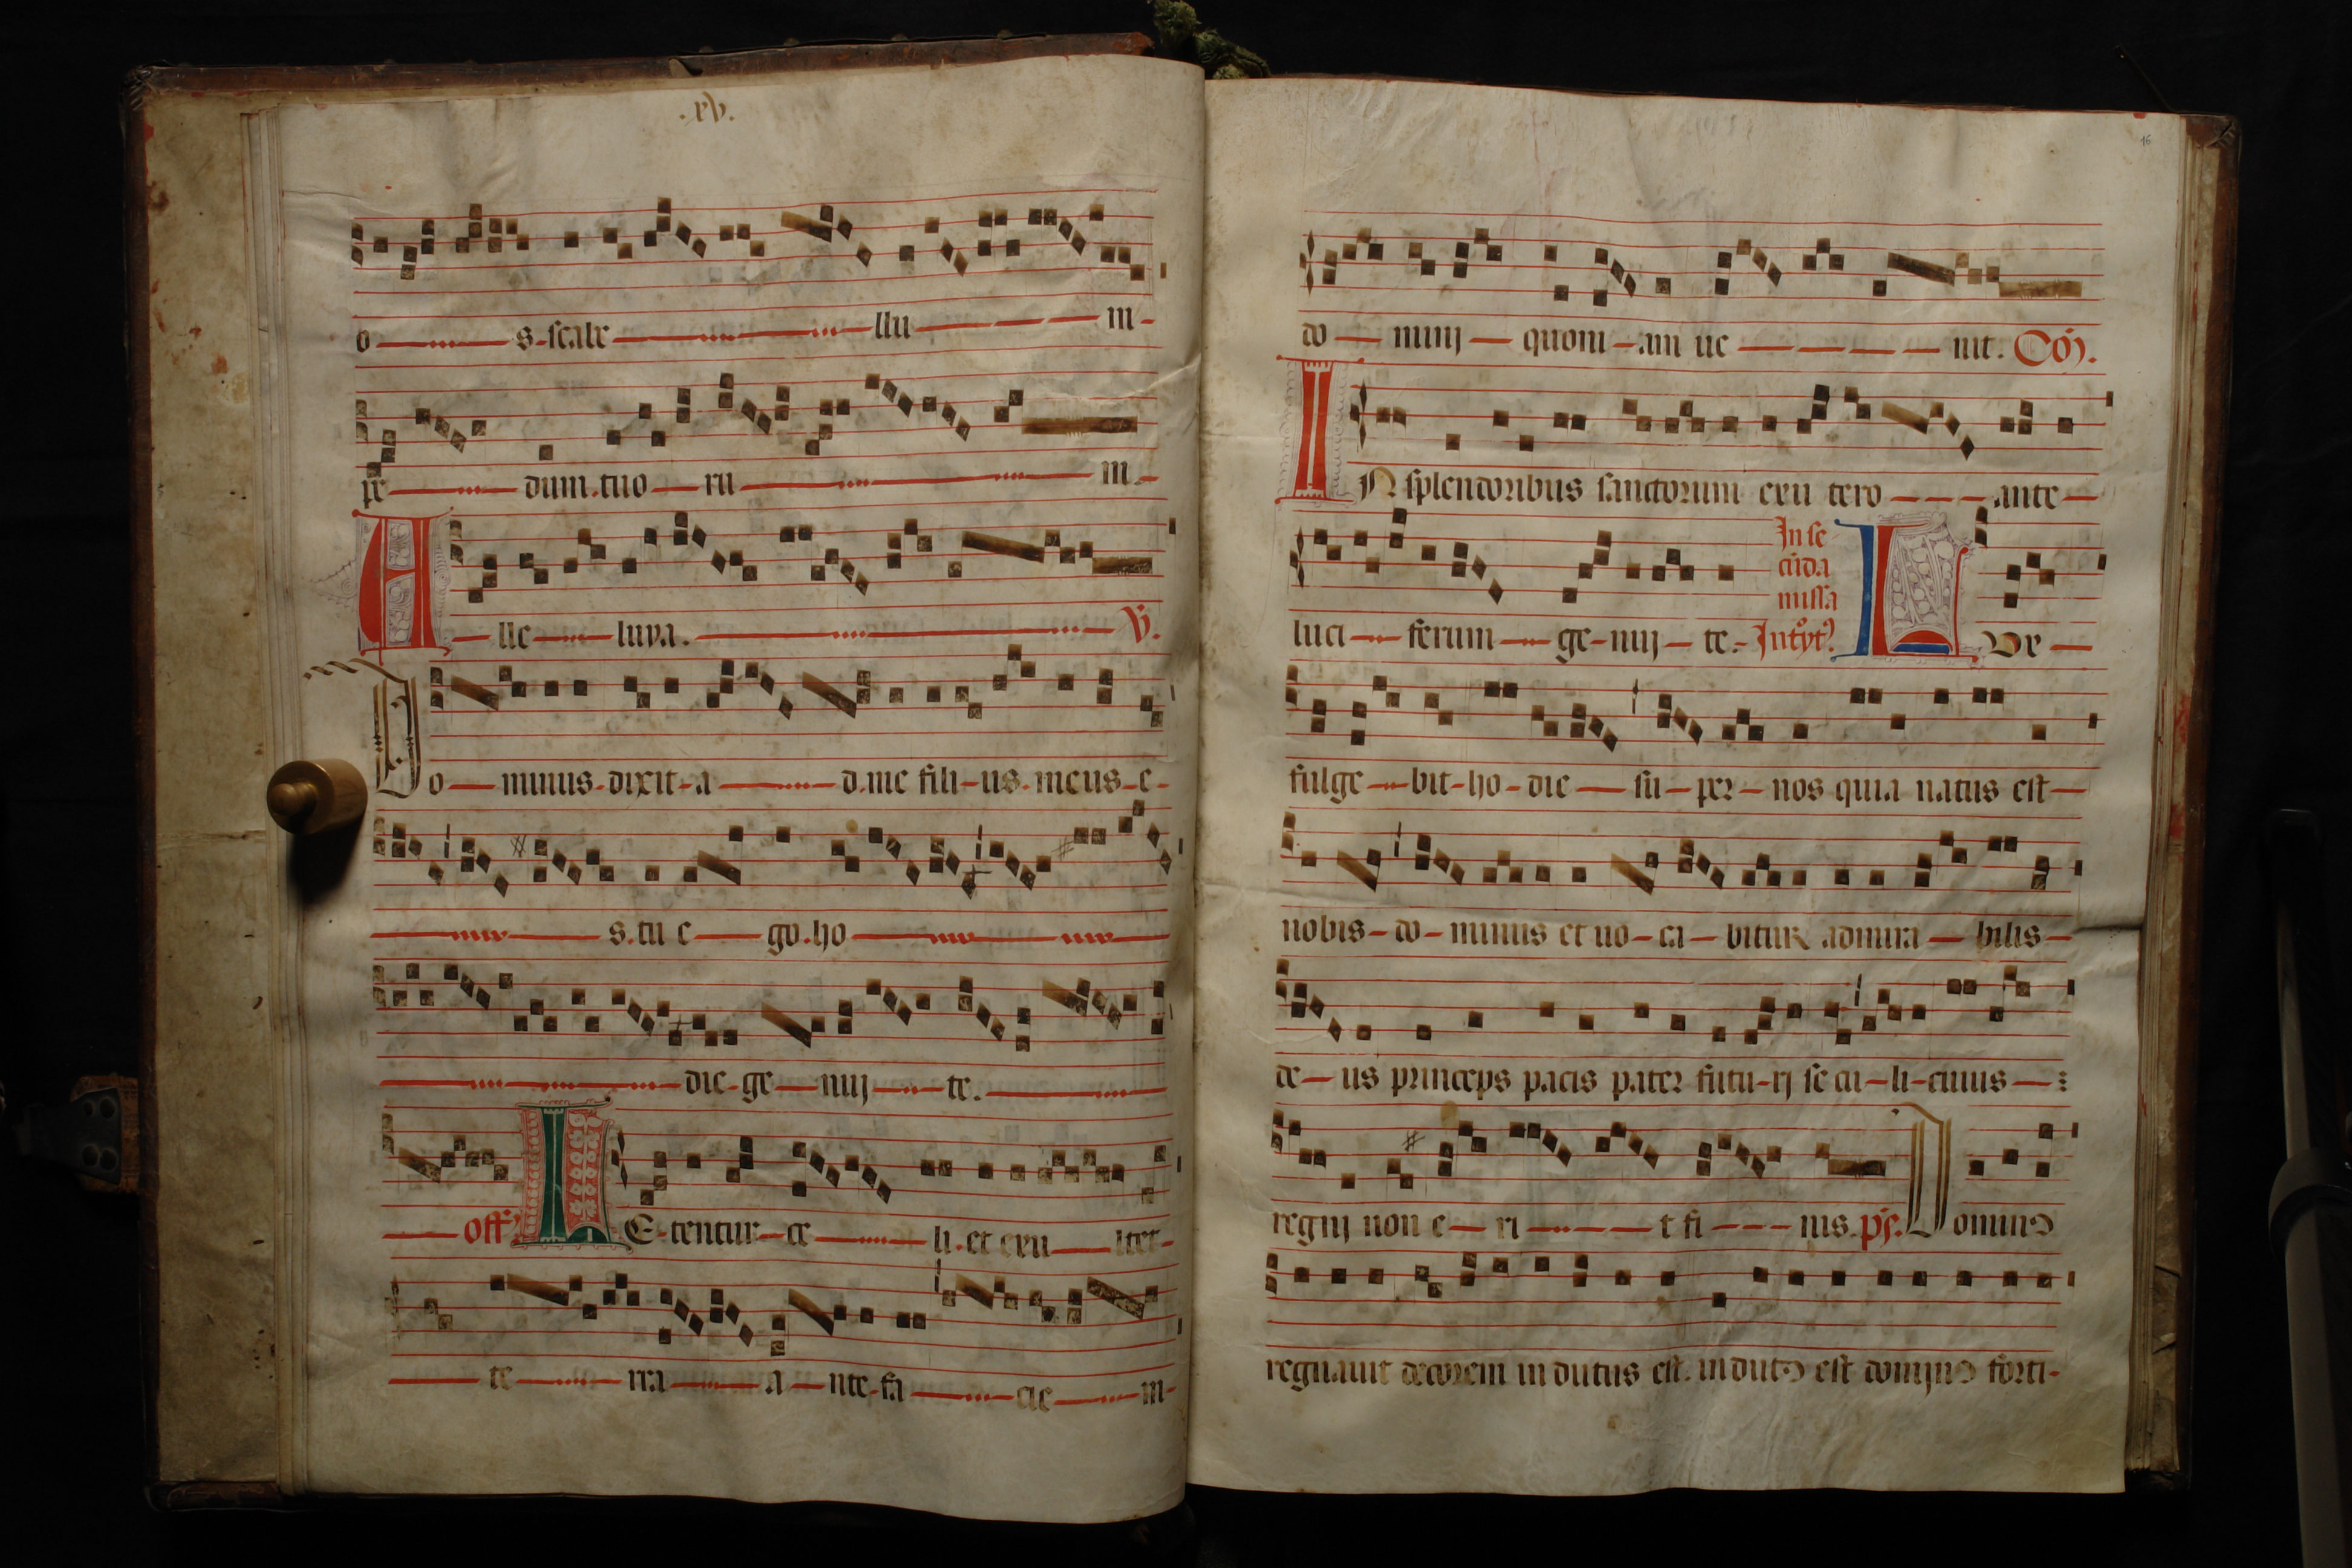 .xv.
o s-scabe llu m-
pe dum.tuo ru m.-
A lle luya. V.
Do minus-dixit-a d.me fili-us.meus-e-
s.tu e go.ho
die-ge nuj te.
off LE-tentur-ce li.et exu ltet-
te rra a nte-fa cie m-
16
do nunj quoni-am ue nit. Com.
IN splendoribus sanctorum exu tero ante
In se
cunda
missa
luci ferum ge-nuj te. Introyt. Lux
fulge bit-ho-die su-per-nos quia natus est
nobis-do-minus et uo-ca-bitur admira bilis
de us princeps pacis pater futu-rj se cu-li-cuius
regnj non e ri t fi nis. ps. Dominus
regnauit decorem indutus est. indutus est domjnus forti-